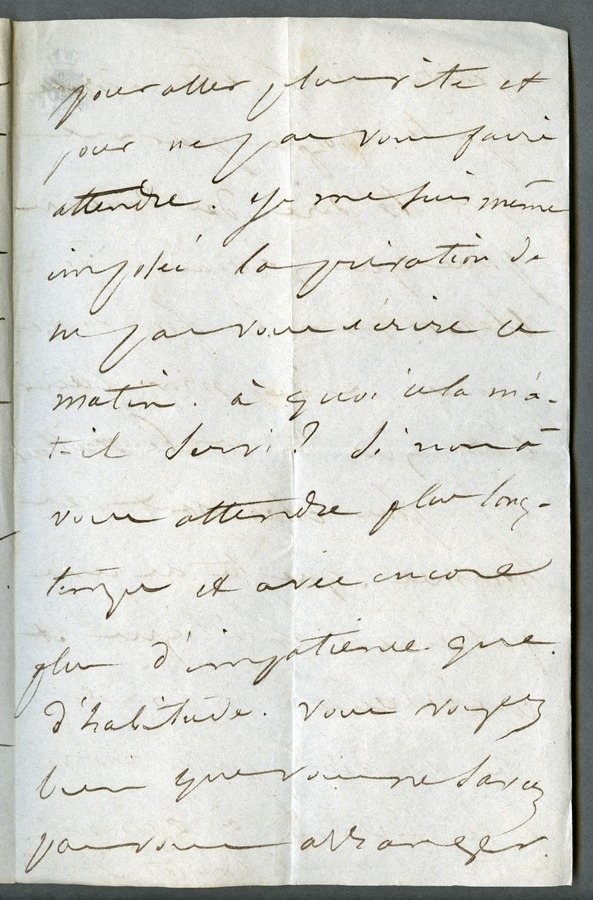 pour aller plus vite et
pour ne pas vous faire
attendre. Je me suis même
imposé la privation de
ne pas vous écrire ce
matin. à quoi cela m'a-
t-il servi? Si non à
vous attendre plus long-
temps et avec encore
plus d'impatience que
d'habitude. Vous voyez
bien que vous ne savez
pas vous arranger.